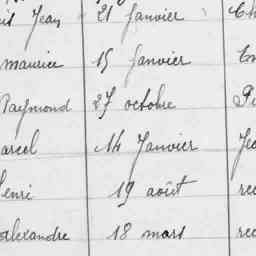 Jean 21 Janvier
maurice 15 Janvier
Raymond 27 octobre
arcel 14 Janvier
enri 19 août
alexandre 18 mars